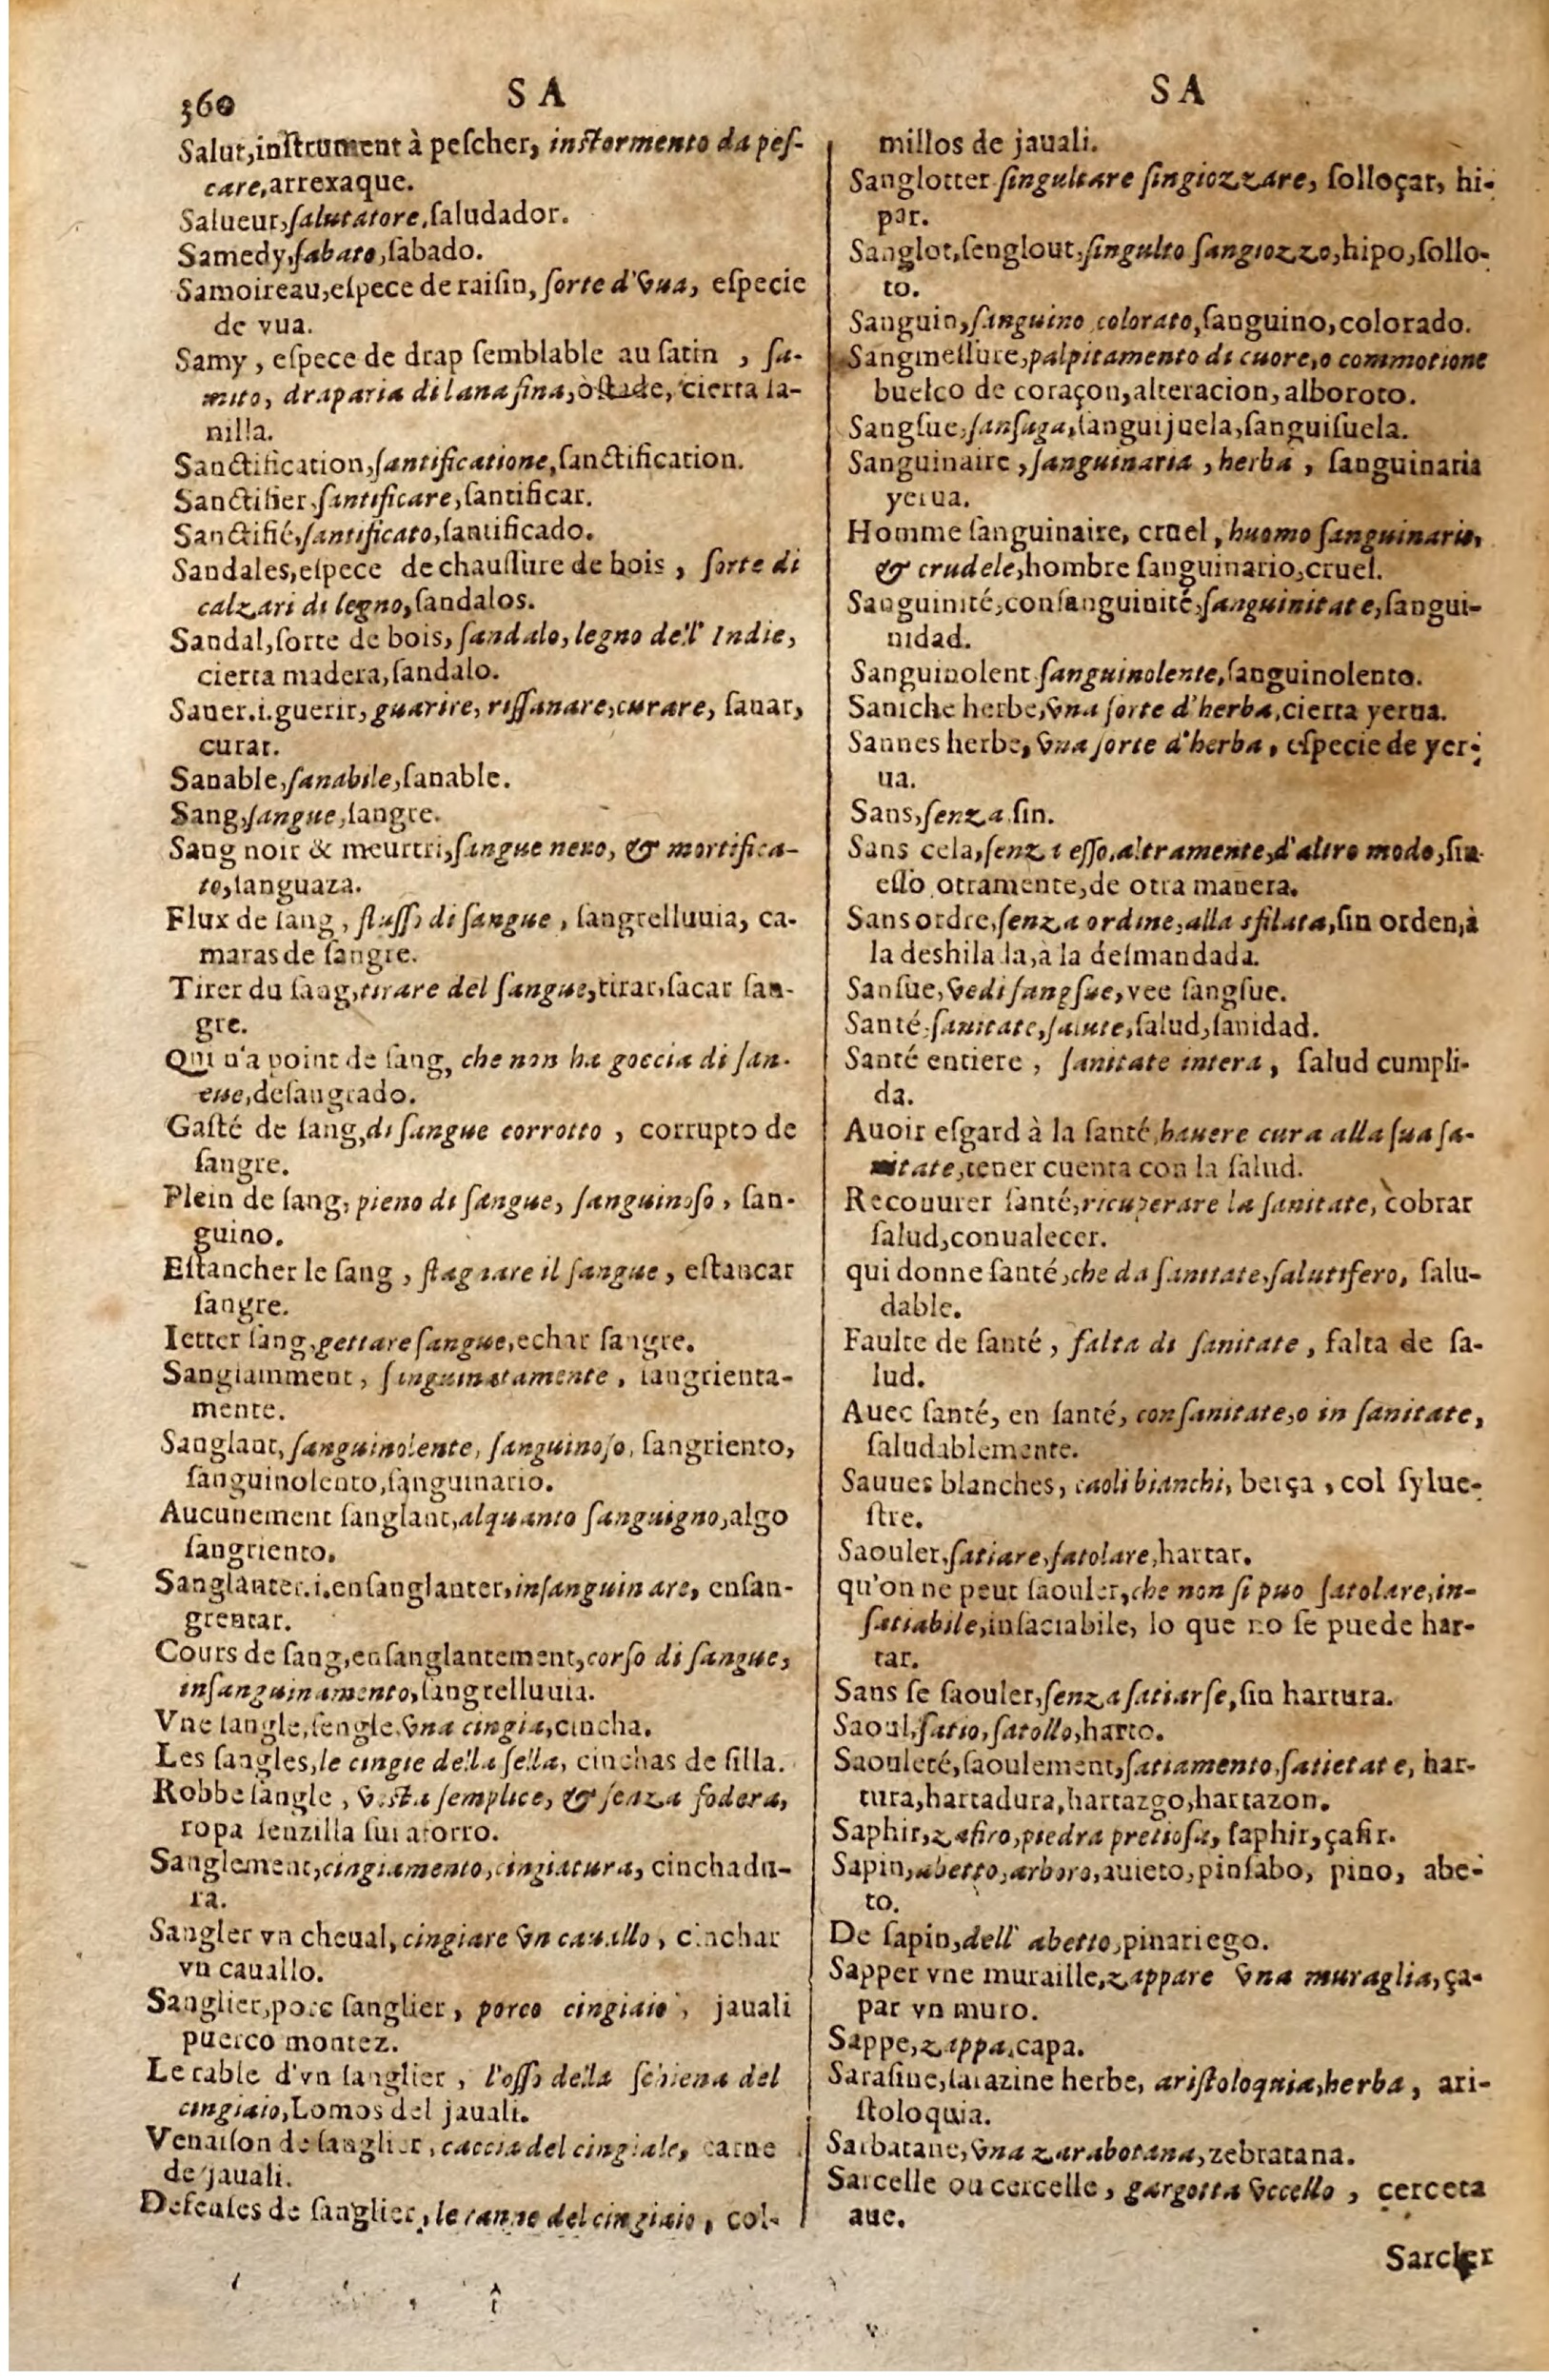 360
SA
Salut,inſtrument à peſcher, inſtormento da peſ-
care,arrexaque.
Salueur,ſalutatore,ſaludador.
Samedy,ſabato,ſabado.
Samoireau,eſpece de raiſin, ſorte d'vua, eſpecie
de vua.
Samy, eſpece de drap ſemblable au ſatin, ſa-
mito, draparia di lana fina,òſtade, cierta la-
nilla.
Sanctification,ſantificatione,ſanctification.
Sanctifier,ſantificare,ſantificar.
Sanctifié,ſantificato,ſantificado.
Sandales,eſpece de chauſſure de bois, ſorte di
calzari di legno,ſandalos.
Sandal,ſorte de bois, ſandalo, legno dell' Indie,
cierta madera,ſandalo.
Saner.i.guerir, guarire, riſſanare,curare, ſanar,
curar.
Sanable,ſanabile,ſanable.
Sang,ſangue,ſangre.
Sang noir & meurtri,ſangue nero, & mortifica-
to,ſanguaza.
Flux de ſang, fluſſo di ſangue, ſangrelluuia, ca-
maras de ſangre.
Tirer du ſang,tirare del ſangue,tirar,ſacar ſan-
gre.
Qui n'a point de ſang, che non ha goccia di ſan-
gue,deſangrado.
Gaſté de ſang,di ſangue corrotto, corrupto de
ſangre.
Plein de ſang, pieno di ſangue, ſanguinoſo, ſan-
guino.
Eſtancher le ſang, ſtagnare il ſangue, eſtancar
ſangre.
Ietter ſang,gettare ſangue,echar ſangre.
Sanglamment, ſanguinatamente, ſangrienta-
mente.
Sanglant, ſanguinolente, ſanguinoſo, ſangriento,
ſanguinolento,ſanguinario.
Aucunement ſanglant,alquanto ſanguigno,algo
ſangriento.
Sanglanter.i.enſanglanter,inſanguinare, enſan-
grentar.
Cours de ſang,enſanglantement,corſo di ſangue,
inſanguinamento,ſangrelluuia.
Vne ſangle,ſengle,vna cingia,cincha.
Les ſangles,le cingie della ſella, cinchas de ſilla.
Robbe ſangle, veſta ſemplice, & ſenza fodera,
ropa ſenzilla ſin aforro.
Sanglement,cingiamento,cingiatura, cinchadu-
ra.
Sangler vn cheual,cingiare vn cauallo, cinchar
vn cauallo.
Sanglier,porc ſanglier, porco cingiaio, jauali
puerco montez.
Le rable d'vn ſanglier, l'oſſo della ſchiena del
cingiaio,Lomos del jauali.
Venaiſon de ſanglier, caccia del cingiale, carne
de jauali.
Defenſes de ſanglier, le zanne del cingiaio, col-
SA
millos de jauali.
Sanglotter ſingultare ſingiozzare, ſolloçar, hi-
par.
Sanglot,ſenglout,ſingulto ſangiozzo,hipo,ſollo-
to.
Sanguin,ſanguino colorato,ſanguino,colorado.
Sangmeſlure,palpitamento di cuore,o commotione
buelco de coraçon,alteracion,alboroto.
Sangſue,ſanſuga,ſanguijuela,ſanguiſuela.
Sanguinaire,ſanguinaria, herba, ſanguinaria
yerua.
Homme ſanguinaire, cruel, huomo ſanguinario,
& crudele,hombre ſanguinario,cruel.
Sanguinité,conſanguinité,ſanguinitate,ſangui-
nidad.
Sanguinolent ſanguinolente,ſanguinolento.
Saniche herbe,vna ſorte d'herba,cierta yerua.
Sannes herbe, vna ſorte d'herba, eſpecie de yer-
ua.
Sans,ſenza ſin.
Sans cela,ſenza eſſo,altramente,d'altro modo,ſin
eſſo otramente,de otra manera.
Sans ordre,ſenza ordine,alla sfilata,ſin orden,à
la deshilada,à la deſmandada.
Sanſue,vedi ſangſue,vee ſangſue.
Santé ſanitate,ſalute,ſalud,ſanidad.
Santé entiere, ſanitate intera, ſalud cumpli-
da.
Auoir eſgard à la ſanté,hauere cura alla ſua ſa-
nitate,tener cuenta con la ſalud.
Recouurer ſanté,ricuperare la ſanitate, cobrar
ſalud,conualecer.
qui donne ſanté,che da ſanitate,ſalutifero, ſalu-
dable.
Faulte de ſanté, falta di ſanitate, falta de ſa-
lud.
Auec ſanté, en ſanté, con ſanitate,o in ſanitate,
ſaludablemente.
Sauues blanches, caoli bianchi, berça, col ſylue-
ſtre.
Saouler,ſatiare,ſatolare,hartar.
qu'on ne peut ſaouler,che non ſi puo ſatolare,in-
ſatiabile,inſaciabile, lo que no ſe puede har-
tar.
Sans ſe ſaouler,ſenza ſatiarſe,ſin hartura.
Saoul,ſatio,ſatollo,harto.
Saouleté,ſaoulement,ſatiamento,ſatietate, har-
tura,hartadura,hartazgo,hartazon.
Saphir,zafiro,piedra pretioſa, ſaphir,çafir.
Sapin,abetto,arboro,auieto,pinſabo, pino, abe-
to.
De ſapin,dell' abetto,pinariego.
Sapper vne muraille,zappare vna muraglia,ça-
par vn muro.
Sappe,zappa,capa.
Saraſine,ſarazine herbe, ariſtoloquia,herba, ari-
ſtoloquia.
Sarbatane,vna zarabotana,zebratana.
Sarcelle ou cercelle, gargotta vccello, cerceta
aue.
Sarcler